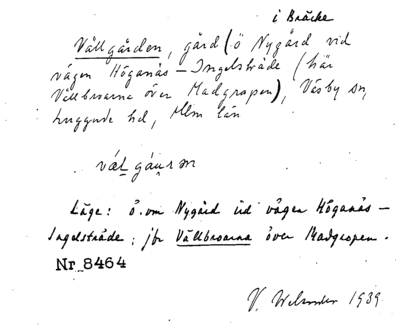 i Bräcke
Vällgården, gård (ö Nygård vid
vägen Höganäs – Ingelsträde (här
Vällbroarna över Madgropen), Väsby sn,
Luggude hd, Mlm län
väl gáụ̄rm
Läge: ö. om Nygård vid vägen Höganäs –
Ingelsträde; jfr Vällbroarna över Madgropen.
Nr 8464
V. Welander 1939